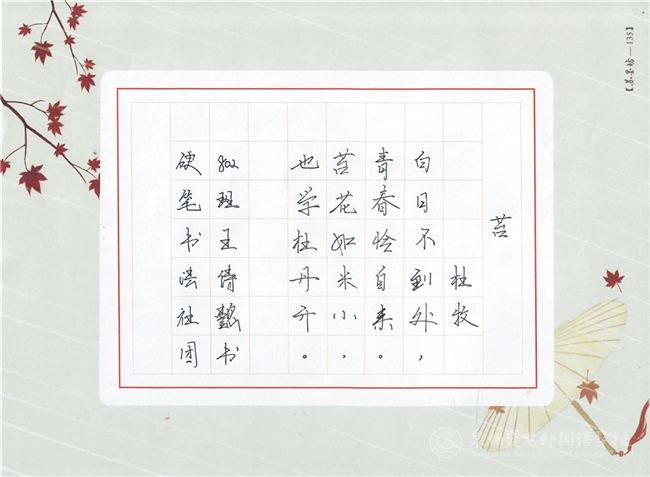 苔
杜牧
白日不到处，
青春恰自来。
苔花如米小，
也学牡丹开。
802班王倩懿书
硬笔书法社团
135】
外国语学校